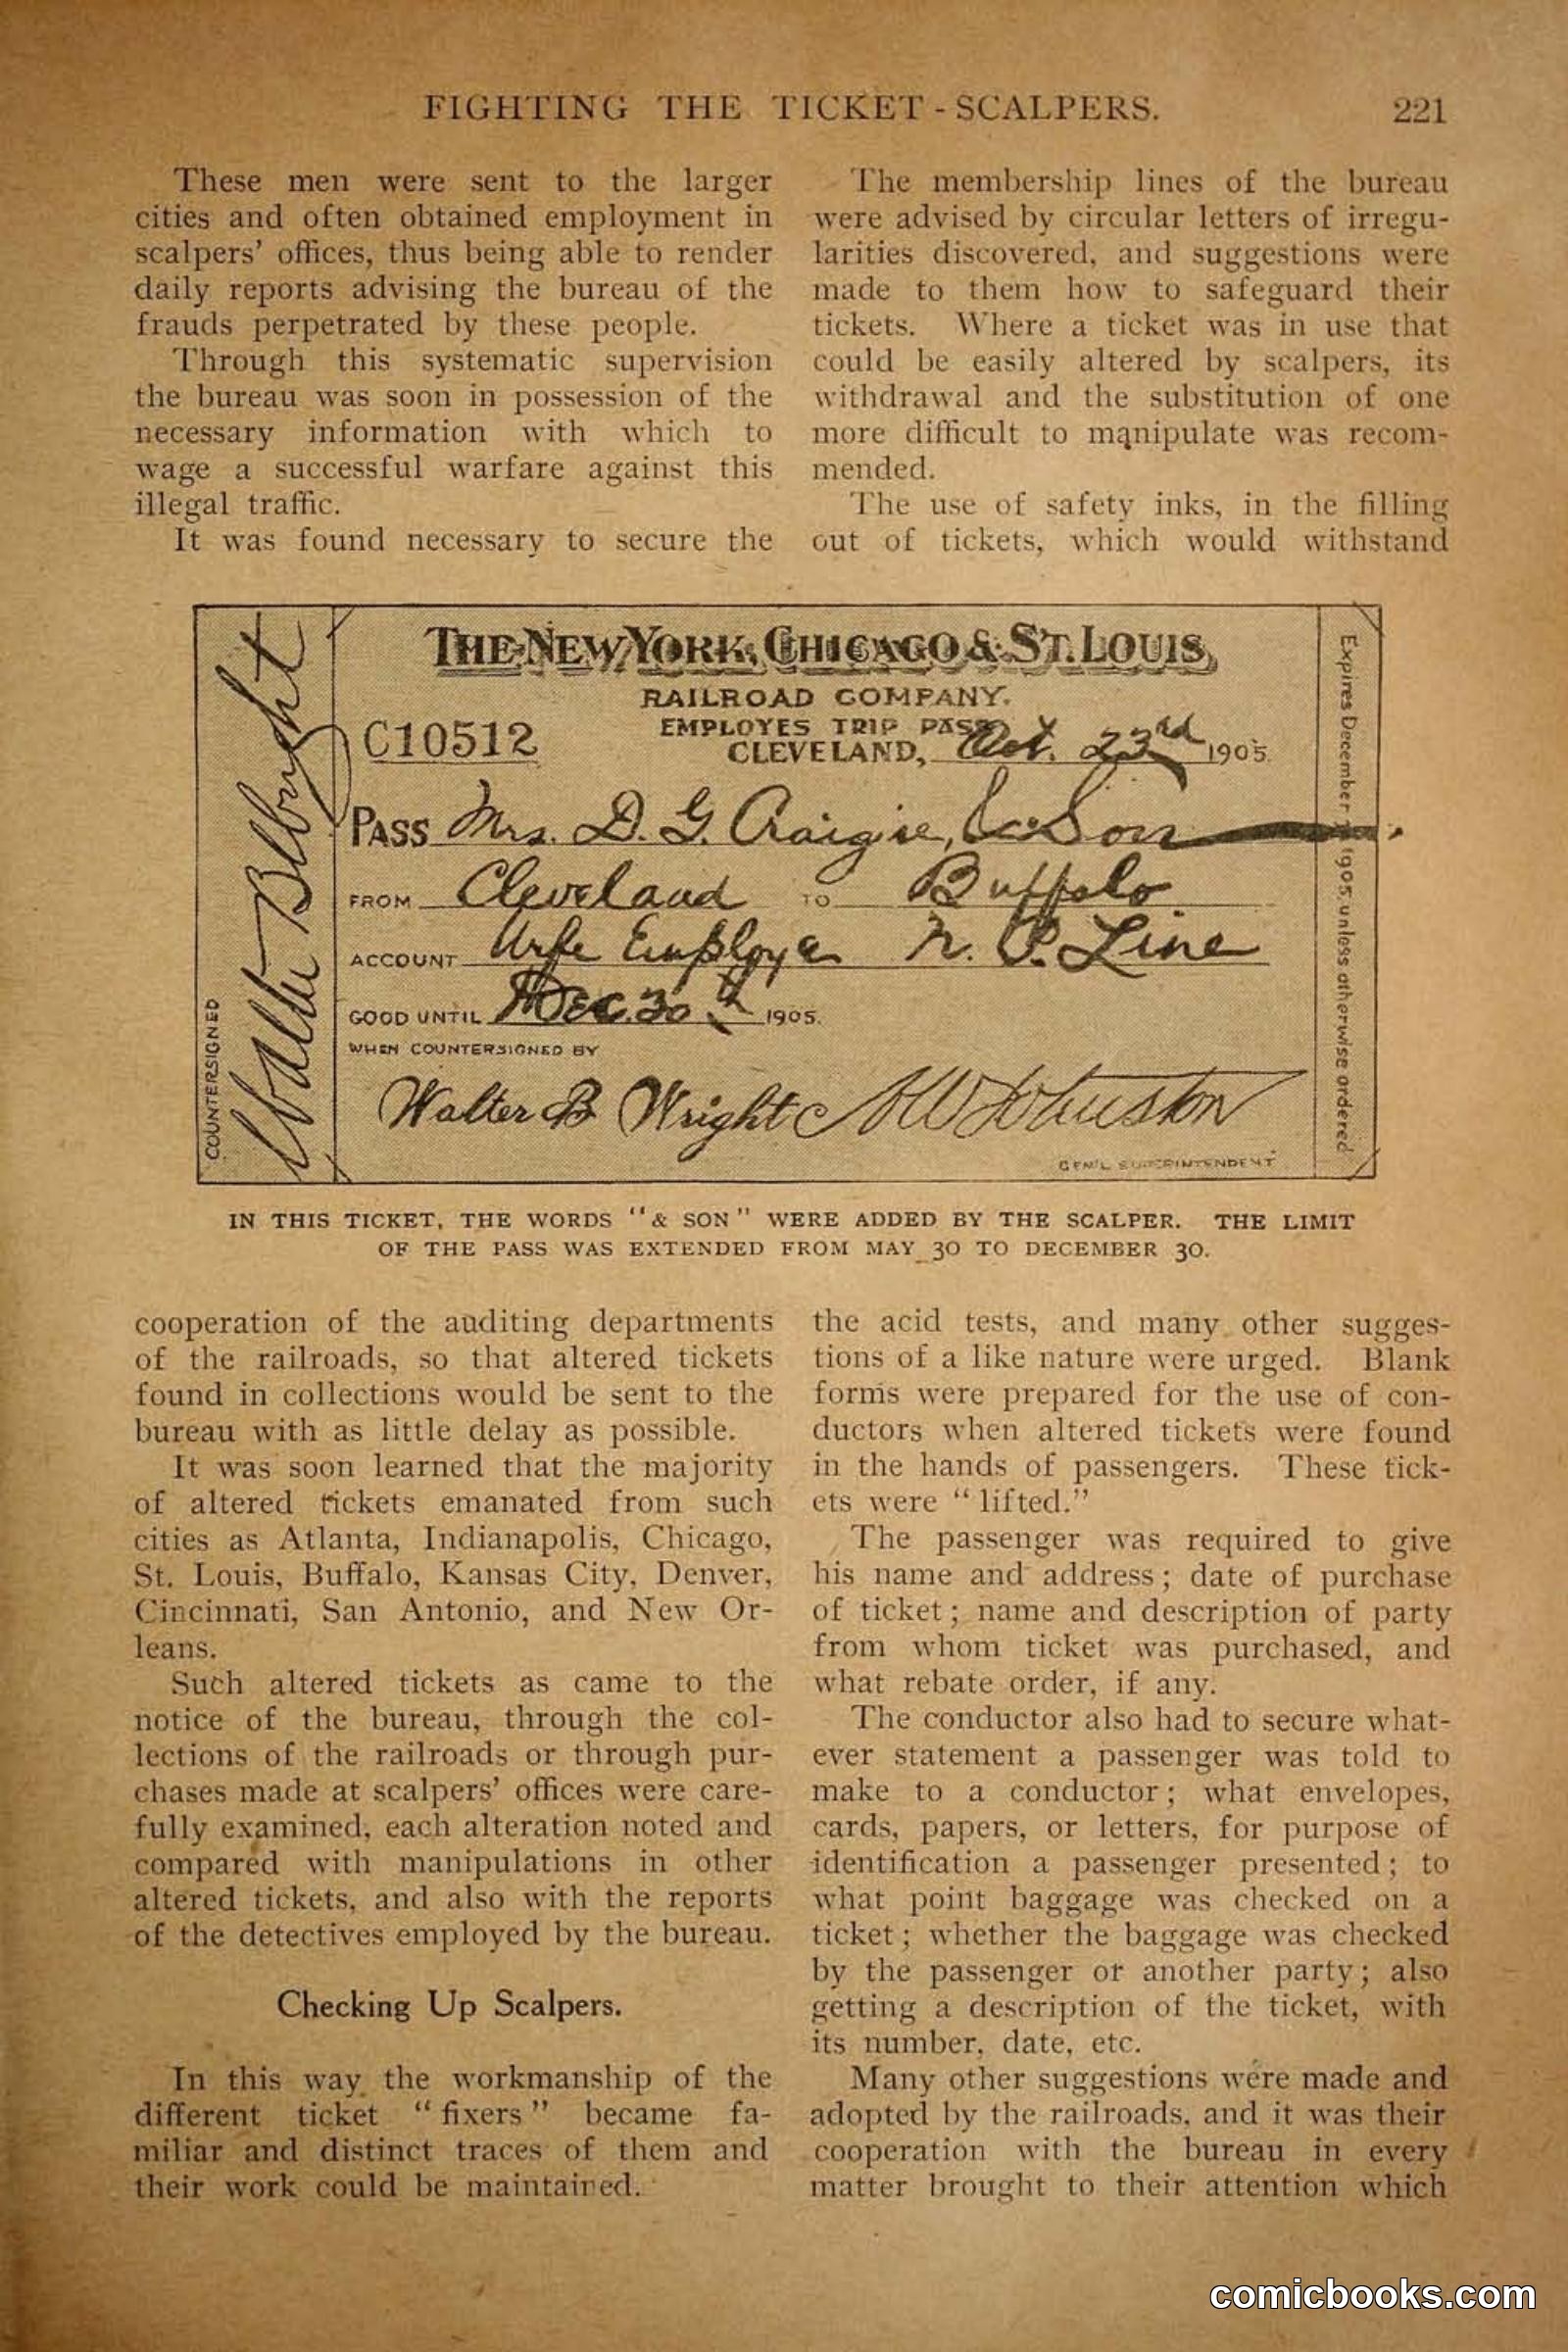 FIGHTING THE TICKET-SCALPERS. 221
These men were sent to the larger
cities and often obtained employment in
scalpers' offices, thus being able to render
daily reports advising the bureau of the
frauds perpetrated by these people.
Through this systematic supervision
the bureau was soon in possession of the
necessary information with which to
wage a successful warfare against this
illegal traffic.
It was found necessary to secure the
The membership lines of the bureau
were advised by circular letters of irregu-
larities discovered, and suggestions were
made to them how to safeguard their
tickets. Where a ticket was in use that
could be easily altered by scalpers, its
withdrawal and the substitution of one
more difficult to manipulate was recom-
mended.
The use of safety inks, in the filling
out of tickets, which would withstand
COUNTERSIGNED
THE NEW YORK, CHICAGO & ST. LOUIS
RAILROAD COMPANY.
EMPLOYES TRIP PASS
C10512
CLEVELAND, Oct. 23rd 1905.
PASS Mrs. D. G. Craigie, & Son
FROM Cleveland TO Buffalo
ACCOUNT Wife Employe N. P. Line
GOOD UNTIL Dec. 30th 1905.
WHEN COUNTERSIGNED BY
Walter B Wright AW Johnston
GEN'L SUPERINTENDENT
Expires December 1905, unless otherwise ordered
IN THIS TICKET, THE WORDS "& SON" WERE ADDED BY THE SCALPER. THE LIMIT
OF THE PASS WAS EXTENDED FROM MAY 30 TO DECEMBER 30.
cooperation of the auditing departments
of the railroads, so that altered tickets
found in collections would be sent to the
bureau with as little delay as possible.
It was soon learned that the majority
of altered tickets emanated from such
cities as Atlanta, Indianapolis, Chicago,
St. Louis, Buffalo, Kansas City, Denver,
Cincinnati, San Antonio, and New Or-
leans.
Such altered tickets as came to the
notice of the bureau, through the col-
lections of the railroads or through pur-
chases made at scalpers' offices were care-
fully examined, each alteration noted and
compared with manipulations in other
altered tickets, and also with the reports
of the detectives employed by the bureau.
Checking Up Scalpers.
In this way the workmanship of the
different ticket "fixers" became fa-
miliar and distinct traces of them and
their work could be maintained.
the acid tests, and many other sugges-
tions of a like nature were urged. Blank
forms were prepared for the use of con-
ductors when altered tickets were found
in the hands of passengers. These tick-
ets were "lifted."
The passenger was required to give
his name and address; date of purchase
of ticket; name and description of party
from whom ticket was purchased, and
what rebate order, if any.
The conductor also had to secure what-
ever statement a passenger was told to
make to a conductor; what envelopes,
cards, papers, or letters, for purpose of
identification a passenger presented; to
what point baggage was checked on a
ticket; whether the baggage was checked
by the passenger or another party; also
getting a description of the ticket, with
its number, date, etc.
Many other suggestions were made and
adopted by the railroads, and it was their
cooperation with the bureau in every
matter brought to their attention which
comicbooks.com